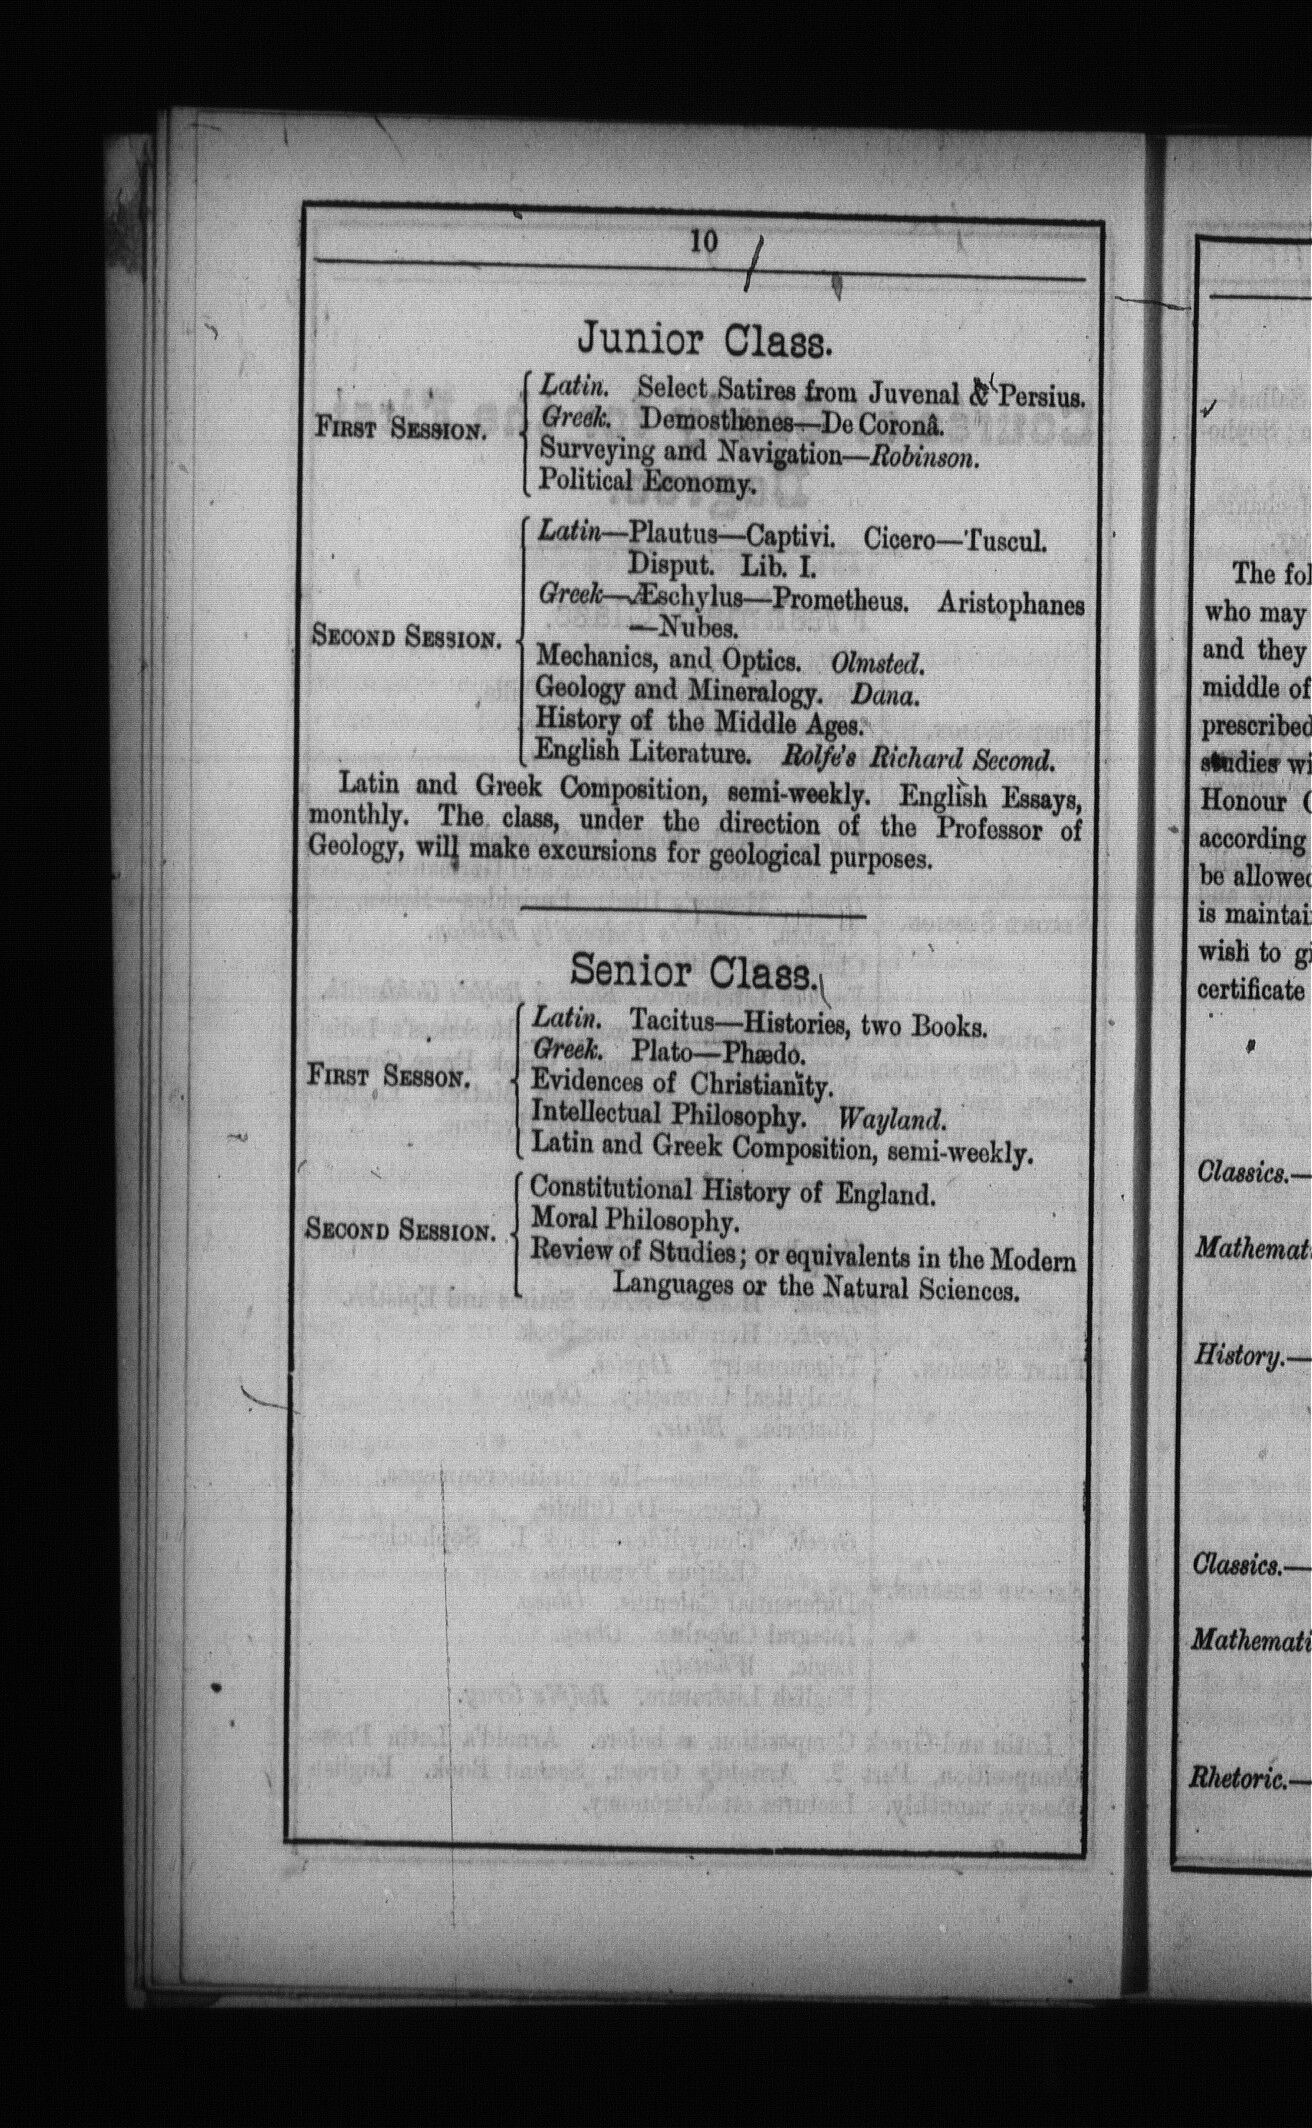 10
Junior Class.
FIRST SESSION.
Latin. Select Satires from Juvenal & Persius.
Greek. Demosthenes—De Coronâ.
Surveying and Navigation—Robinson.
Political Economy.
SECOND SESSION.
Latin—Plautus—Captivi. Cicero—Tuscul.
Disput. Lib. I.
Greek—Æschylus—Prometheus. Aristophanes
—Nubes.
Mechanics, and Optics. Olmsted.
Geology and Mineralogy. Dana.
History of the Middle Ages.
English Literature. Rolfe's Richard Second.
Latin and Greek Composition, semi-weekly. English Essays,
monthly. The class, under the direction of the Professor of
Geology, will make excursions for geological purposes.
Senior Class.
FIRST SESSON.
Latin. Tacitus—Histories, two Books.
Greek. Plato—Phædo.
Evidences of Christianity.
Intellectual Philosophy. Wayland.
Latin and Greek Composition, semi-weekly.
SECOND SESSION.
Constitutional History of England.
Moral Philosophy.
Review of Studies; or equivalents in the Modern
Languages or the Natural Sciences.
The
who may
and they
middle of
prescribed
studies
Honour
according
be
is
wish to
certificate
Classics.—
History.—
Classics.—
Rhetoric.—